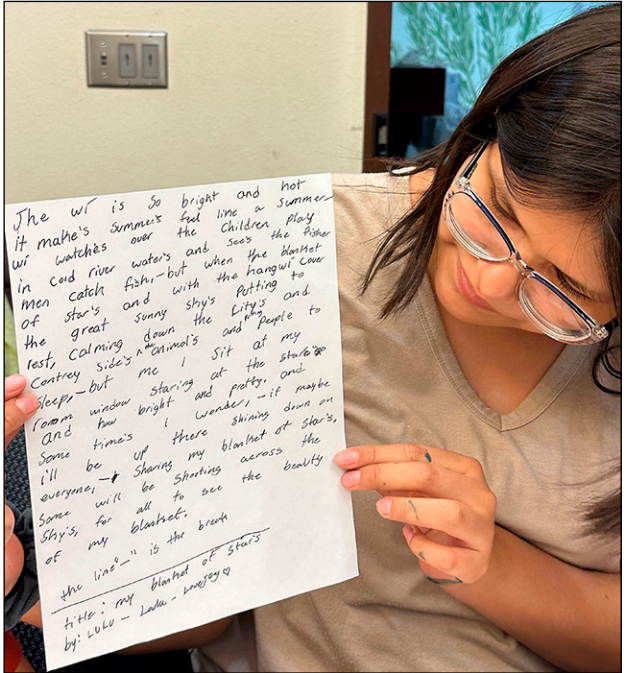 The wi is so bright and hot
it make's summer's feel line a summer
wi watches over the children play
in cold river water's and see's the fisher
men catch fish, -but when the blanket
of star's and with the hangwi cover
the great sunny shy's putting to
rest, calming down the city's and
contrey side's the animal's and people to
sleep, -but me I sit at my
room window staring at the star's
and how bright and pretty, and
some time's I wonder, -it maybe
i'll be up there shining down on
everyone, - sharing my blanket of star's,
some will be shooting across the
shy's, for all to see the beality
of my blanket.
the line "-" is the break
title: my blanket of star's
by: LULU - Lada - Lovejoy